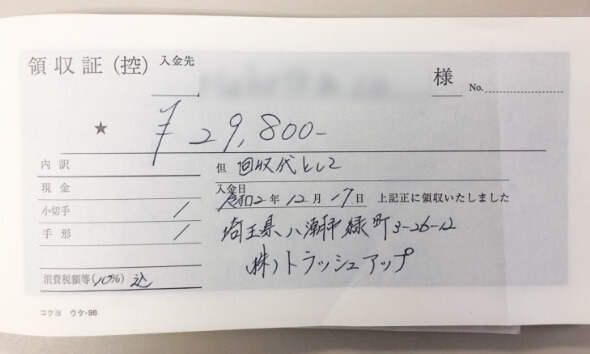 領収証(控) 入金先 様 No.
★ ¥29,800-
内訳 但 回収代として
現金 入金日 令和2年12月17日 上記正に領収いたしました
小切手 /
手形 /
埼玉県八潮市緑町3-26-12
(株)トラッシュアップ
消費税額等(10%) 込
コクヨ ウケ-98